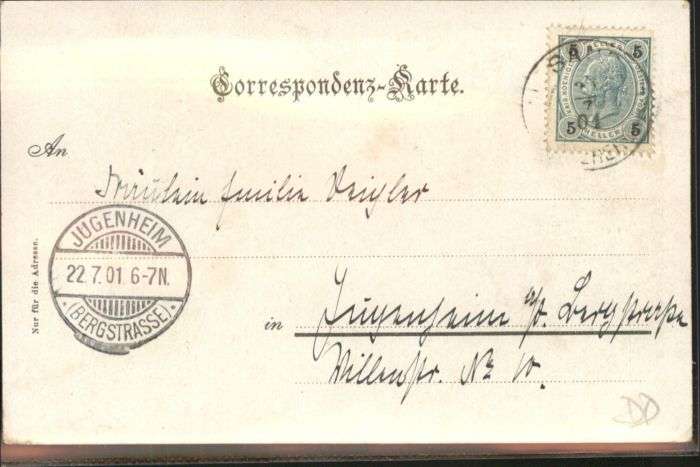 Correspondenz-Karte.
5 5
5 HELLER 5
An
Fräulein Emilie Zeigler
JUGENHEIM
22.7.01 6-7N.
(BERGSTRASSE)
Nur für die Adresse.
in Jugenheim a/d. Bergstrasse
Villenstr. No 10.